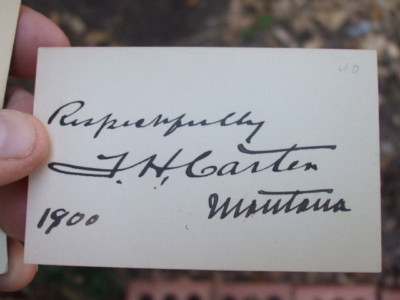 40
Respectfully
T. H. Carter
Montana
1900